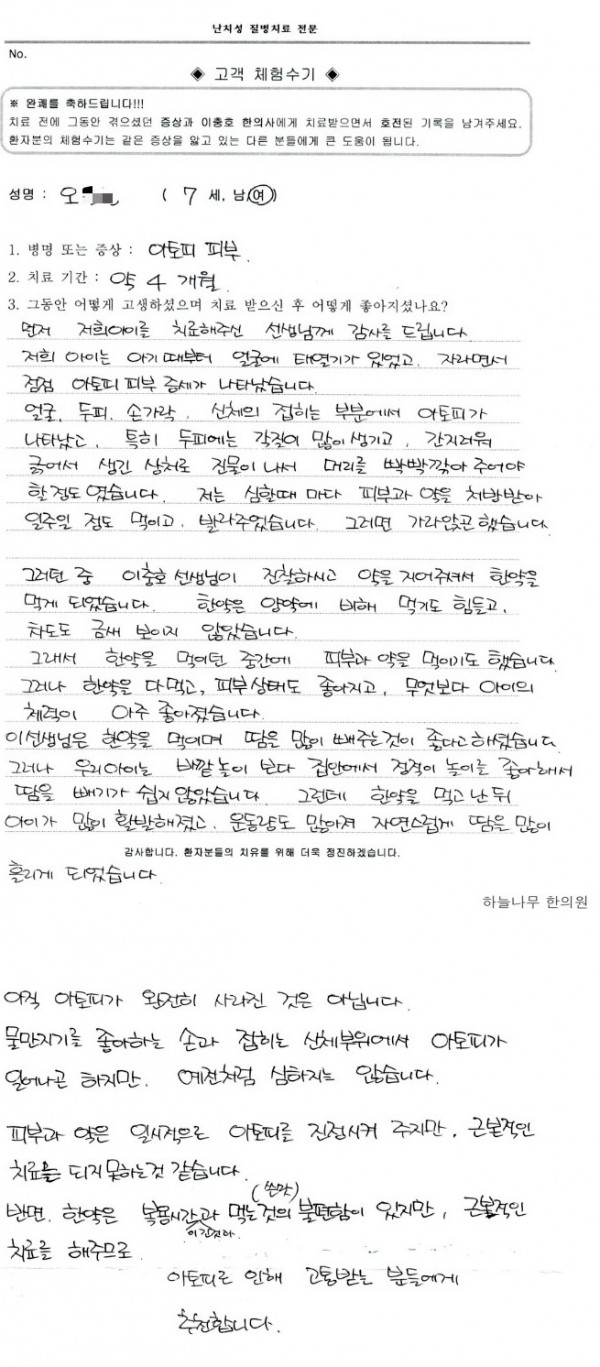 난치성 질병치료 전문
No.
◈ 고객 체험수기 ◈
※ 완쾌를 축하드립니다!!!
치료 전에 그동안 겪으셨던 증상과 이충호 한의사에게 치료받으면서 호전된 기록을 남겨주세요.
환자분의 체험수기는 같은 증상을 앓고 있는 다른 분들에게 큰 도움이 됩니다.
성명 : 오 ( 7 세, 남, 여)
1. 병명 또는 증상 : 아토피 피부
2. 치료 기간 : 약 4 개월
3. 그동안 어떻게 고생하셨으며 치료 받으신 후 어떻게 좋아지셨나요?
먼저 저희아이를 치료해주신 선생님께 감사를 드립니다.
저희 아이는 아기 때부터 얼굴에 태열기가 있었고, 자라면서
점점 아토피 피부 증세가 나타났습니다.
얼굴, 두피, 손가락, 신체의 접히는 부분에서 아토피가
나타났고, 특히 두피에는 각질이 많이 생기고, 간지러워
긁어서 생긴 상처로 진물이 나서 머리를 빡빡깎아 주어야
할 정도 였습니다. 저는 심할때 마다 피부과 약을 처방받아
일주일 정도 먹이고, 발라주었습니다. 그러면 가라앉곤 했습니다.
그러던 중 이충호 선생님이 진찰하시고 약을 지어주셔서 한약을
먹게 되었습니다. 한약은 양약에 비해 먹기도 힘들고,
차도도 금새 보이지 않았습니다.
그래서 한약을 먹이던 중간에 피부과 약을 먹이기도 했습니다.
그러나 한약을 다먹고, 피부상태도 좋아지고, 무엇보다 아이의
체력이 아주 좋아졌습니다.
이선생님은 한약을 먹이며 땀을 많이 빼주는것이 좋다고 하셨습니다.
그러나 우리아이는 바깥놀이 보다 집안에서 정적이 놀이를 좋아해서
땀을 빼기가 쉽지 않았습니다. 그런데 한약을 먹고 난 뒤
아이가 많이 활발해졌고, 운동량도 많아져 자연스럽게 땀을 많이
감사합니다. 환자분들의 치유를 위해 더욱 정진하겠습니다.
흘리게 되었습니다.
하늘나무 한의원
아직 아토피가 완전히 사라진 것은 아닙니다.
물만지기를 좋아하는 손과 접히는 신체부위에서 아토피가
일어나곤 하지만, 예전처럼 심하지는 않습니다.
피부과 약은 일시적으로 아토피를 진정시켜 주지만, 근본적인
치료는 되지 못하는것 같습니다.
(쓴맛)
반면, 한약은 복용시간과 먹는것의 불편함이 있지만, 근본적인
이 길었어.
치료를 해주므로
아토피로 인해 고통받는 분들에게
추천합니다.